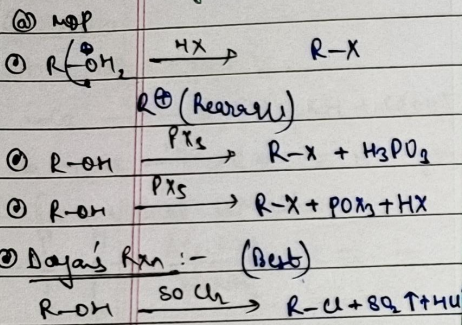 @ MOP
R-OH₂⊕ HX → R-X
R⊕ (Rearran)
R-OH PX₃ → R-X + H₃PO₃
R-OH PX₅ → R-X + POX₃ + HX
Dazan's Rxn :- (Best)
R-OH SOCl₂ → R-Cl + SO₂↑ + HCl